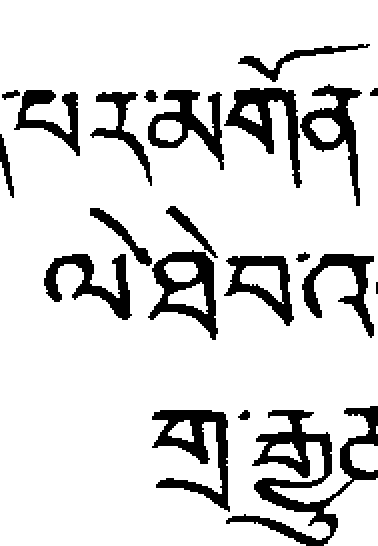 པར་མགོན
ལེ་ཐེབ་འ
གྲ་རྒྱུ